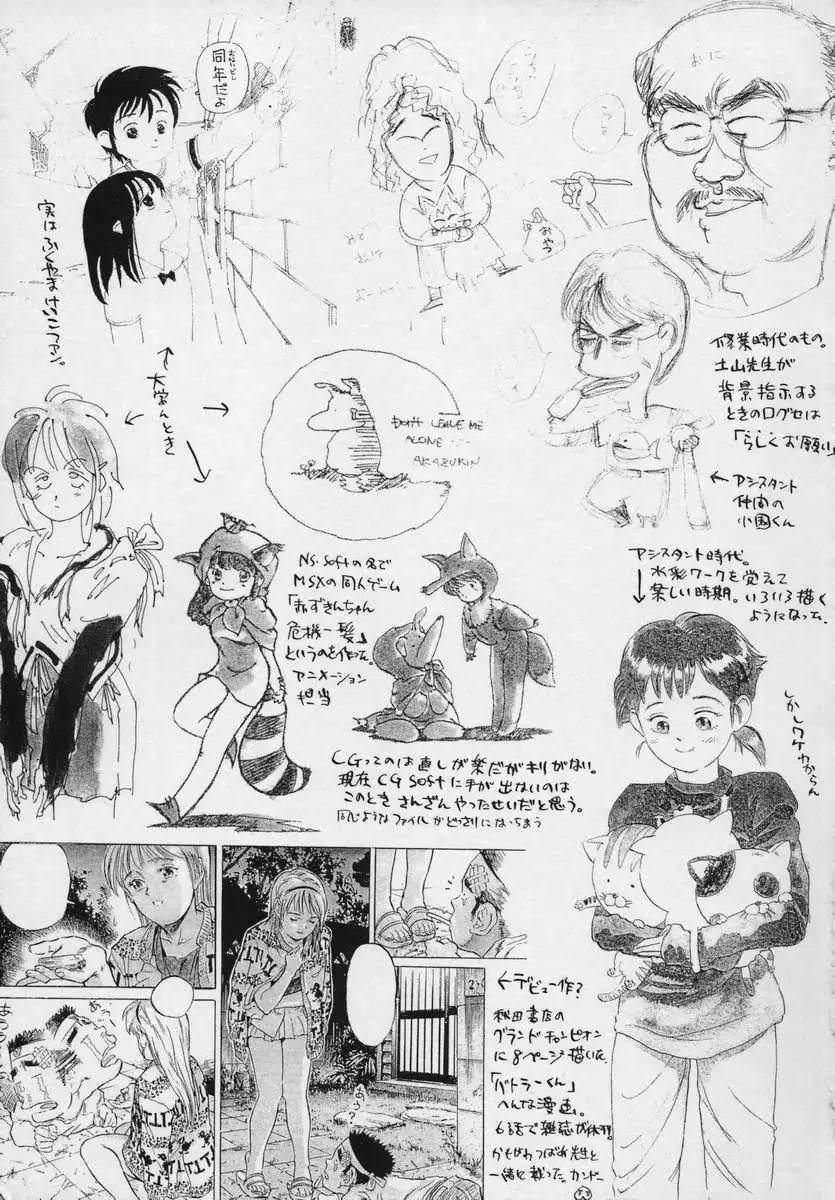 同年だよ
おないどし
おに
おやつ
実はふくやまけいこファン。
↑
大学んとき
修業時代のもの。
土山先生が
背景指示する
ときの口グセは
「らしくお願い」
←アシスタント
仲間の
小国くん
DON'T LEAVE ME
ALONE
AKAZUKIN
NS・Softの名で
MSXの同人ゲーム
「まいずきんちゃん
危機一髪」
というのを作った。
アニメーション
担当
アシスタント時代。
水彩ワークを覚えて
楽しい時期。いろいろ描く
ようになった。
しかしワケわからん
CGってのは直しが楽だがキリがない。
現在CG Softに手が出ないのは
このときさんざんやったせいだと思う。
同じようなファイルがどっさりになっちまう
←デビュー作?
秋田書店の
グランドチャンピオン
に8ページ描いた。
「バトラーくん」
へんな漫画。
6話で雑誌が休刊。
かもがわつばめ先生と
一緒に載った。カンドー